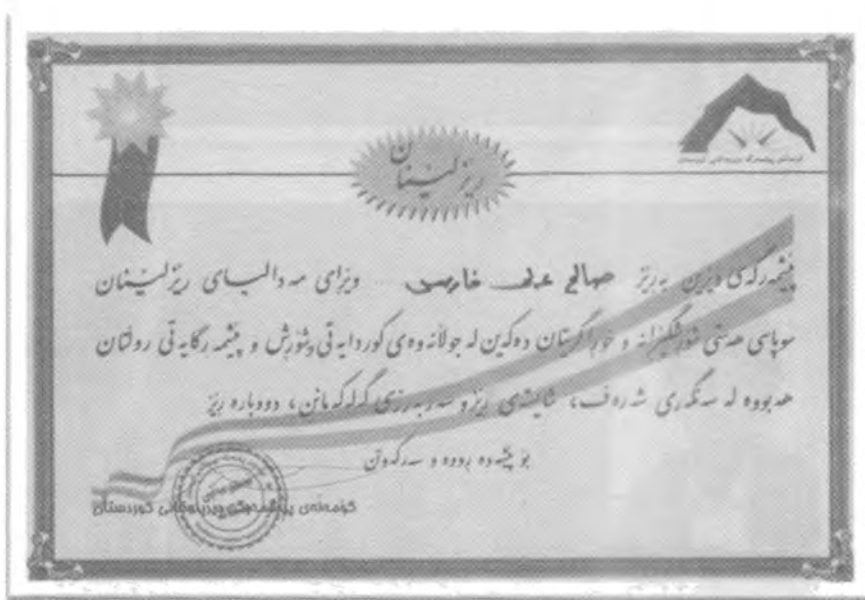 ڕێزلێنان
پێشمەرگەی دێرین بەڕێز صالح علی فارس وێڕای مەدالیای ڕێزلێنان
سوپاسی هەستی شۆڕشگێڕانە و خۆڕاگریتان دەکەین لە جوڵانەوەی کوردایەتی و شۆڕش و پێشمەرگایەتی ڕۆڵتان
هەبووە لە سەنگەری شەرەف، شایستەی ڕێز و سەربەرزی گەلەکەمانن، دووبارە ڕێز
بۆ پێشەوە بوون و سەرکەوتن
کۆمەڵەی پێشمەرگە دێرینەکانی کوردستان